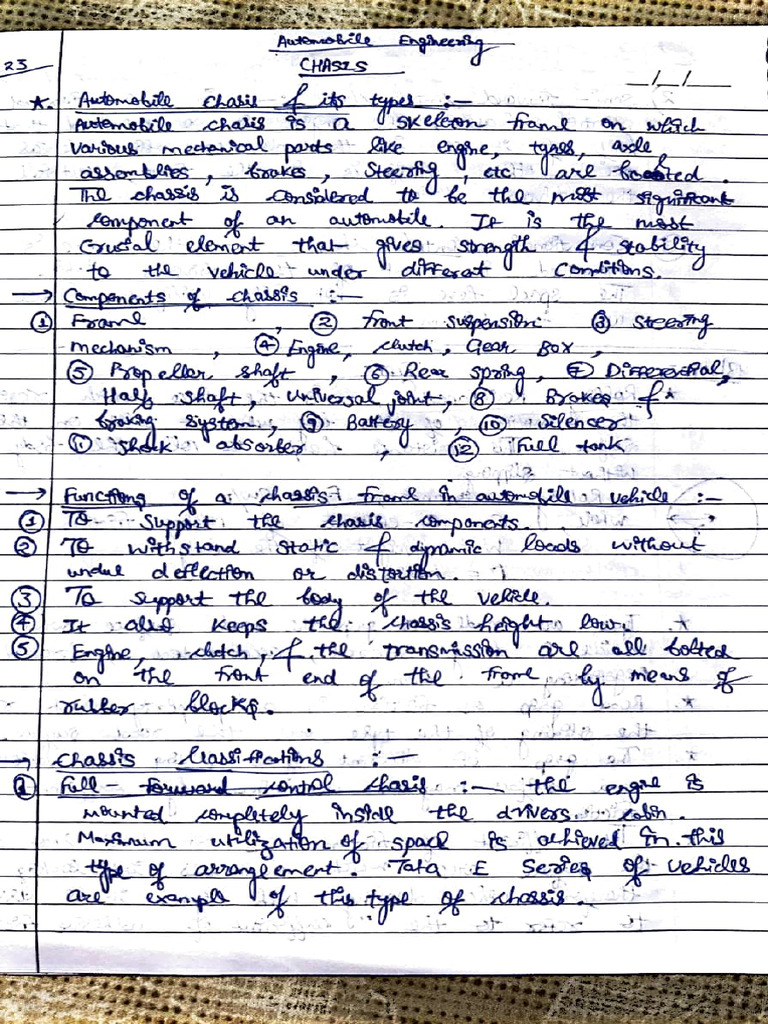 Automobile Engineering
23
CHASIS
__/__/____
*. Automobile chasis & its types :-
Automobile chasis is a skeleton frame on which
various mechanical parts like engine, tyres, axle
assemblies, brakes, steering, etc are boosted.
The chassis is considered to be the most significant
component of an automobile. It is the most
Crucial element that gives strength & stability
to the vehicle under different Conditions.
→ Components of chassis :-
① Frame , ② front suspension ③ steering
mechanism , ④ Engine, clutch, Gear Box ,
⑤ Propeller shaft , ⑥ Rear spring, ⑦ Differential,
Half shaft, universal joint, ⑧ Brakes &
braking system, ⑨ Battery , ⑩ Silencer
⑪ shock absorber , ⑫ Fuel tank
→ Functions of a chassis Frame in automobile vehicle :-
① To support the chasis components.
② To withstand static & dynamic loads without
undue deflection or distortion.
③ To support the body of the vehicle.
④ It also keeps the chassis height low.
⑤ Engine, clutch, & the transmission are all bolted
on the front end of the frame by means of
rubber blocks.
→ Chassis Classifications :-
① Full-forward control chasis :- the engine is
mounted completely inside the drivers cabin.
Maximum utilization of space is achieved in this
type of arrangement. Tata E Series of vehicles
are example of this type of chassis.